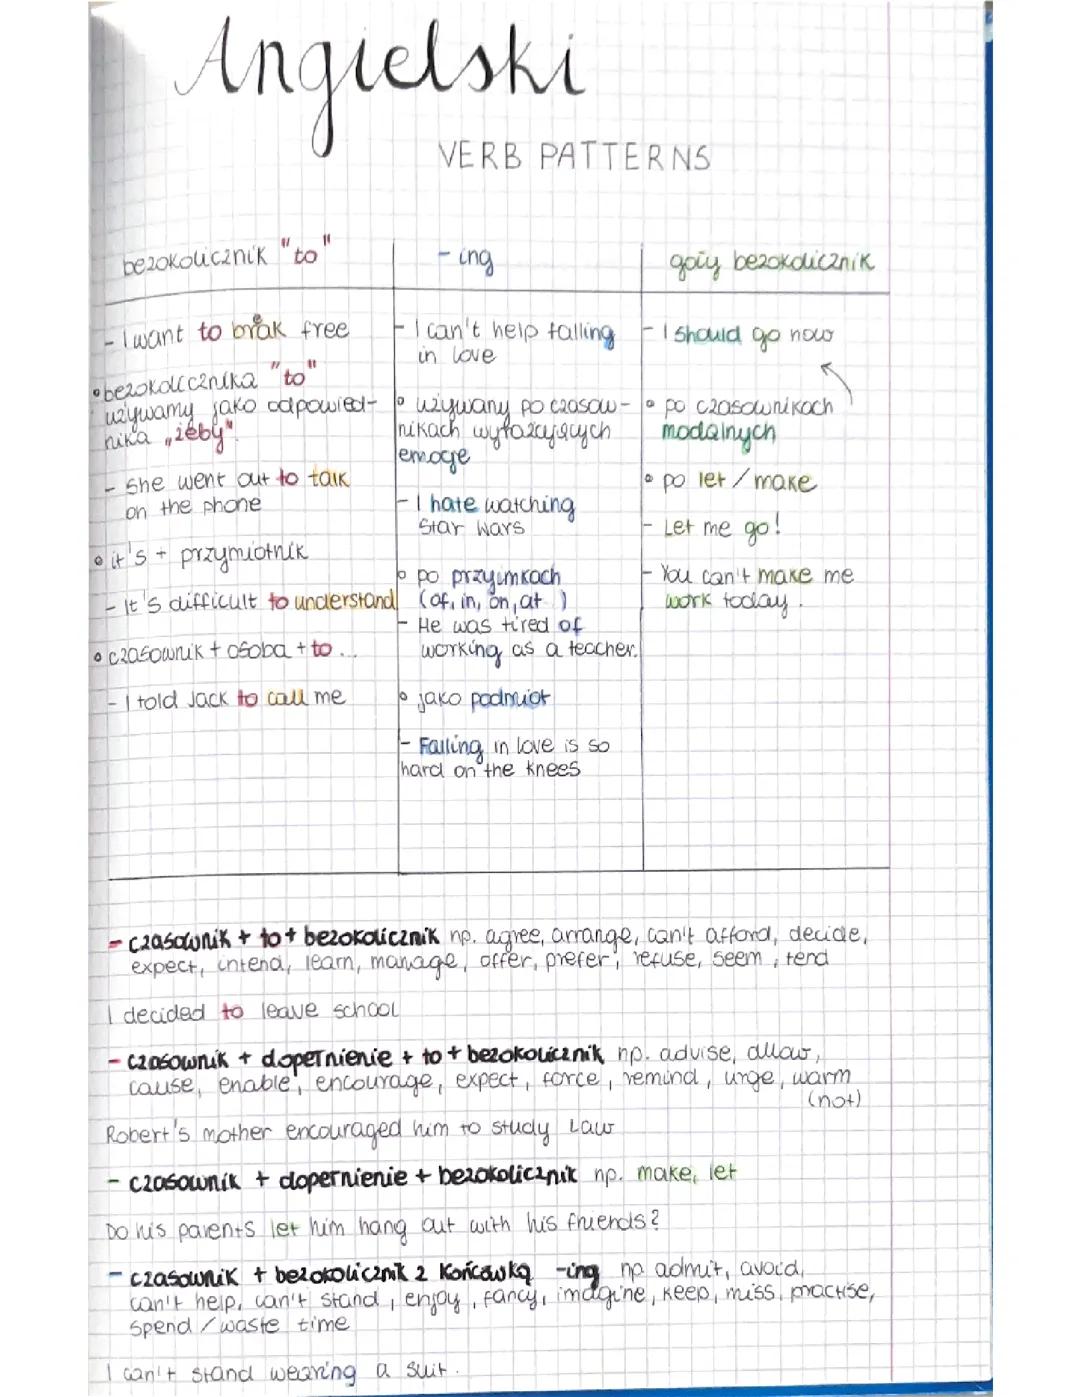 Angielski
VERB PATTERNS
bezokolicznik "to"
- I want to break free
• bezokolicznika "to"
używamy jako odpowied-
nika „żeby"
- she went out to talk
on the phone
• it's + przymiotnik
- It's difficult to understand
• czasownik + osoba + to ...
- I told Jack to call me
- ing
- I can't help falling
in love
• używany po czasow-
nikach wyrażających
emocje
- I hate watching
Star Wars
• po przyimkach
(of, in, on, at )
- He was tired of
working as a teacher.
• jako podmiot
- Falling in love is so
hard on the knees
goły bezokolicznik
- I should go now
• po czasownikach
modalnych
• po let / make
- Let me go!
- You can't make me
work today.
- czasownik + to + bezokolicznik np. agree, arrange, can't afford, decide,
expect, intend, learn, manage, offer, prefer, refuse, seem, tend
I decided to leave school
- czasownik + dopełnienie + to + bezokolicznik np. advise, allow,
cause, enable, encourage, expect, force, remind, urge, warm
(not)
Robert's mother encouraged him to study Law
- czasownik + dopełnienie + bezokolicznik np. make, let
Do his parents let him hang out with his friends?
- czasownik + bezokolicznik z końcówką -ing np admit, avoid,
can't help, can't stand, enjoy, fancy, imagine, keep, miss, practise,
spend / waste time
I can't stand wearing a suit.